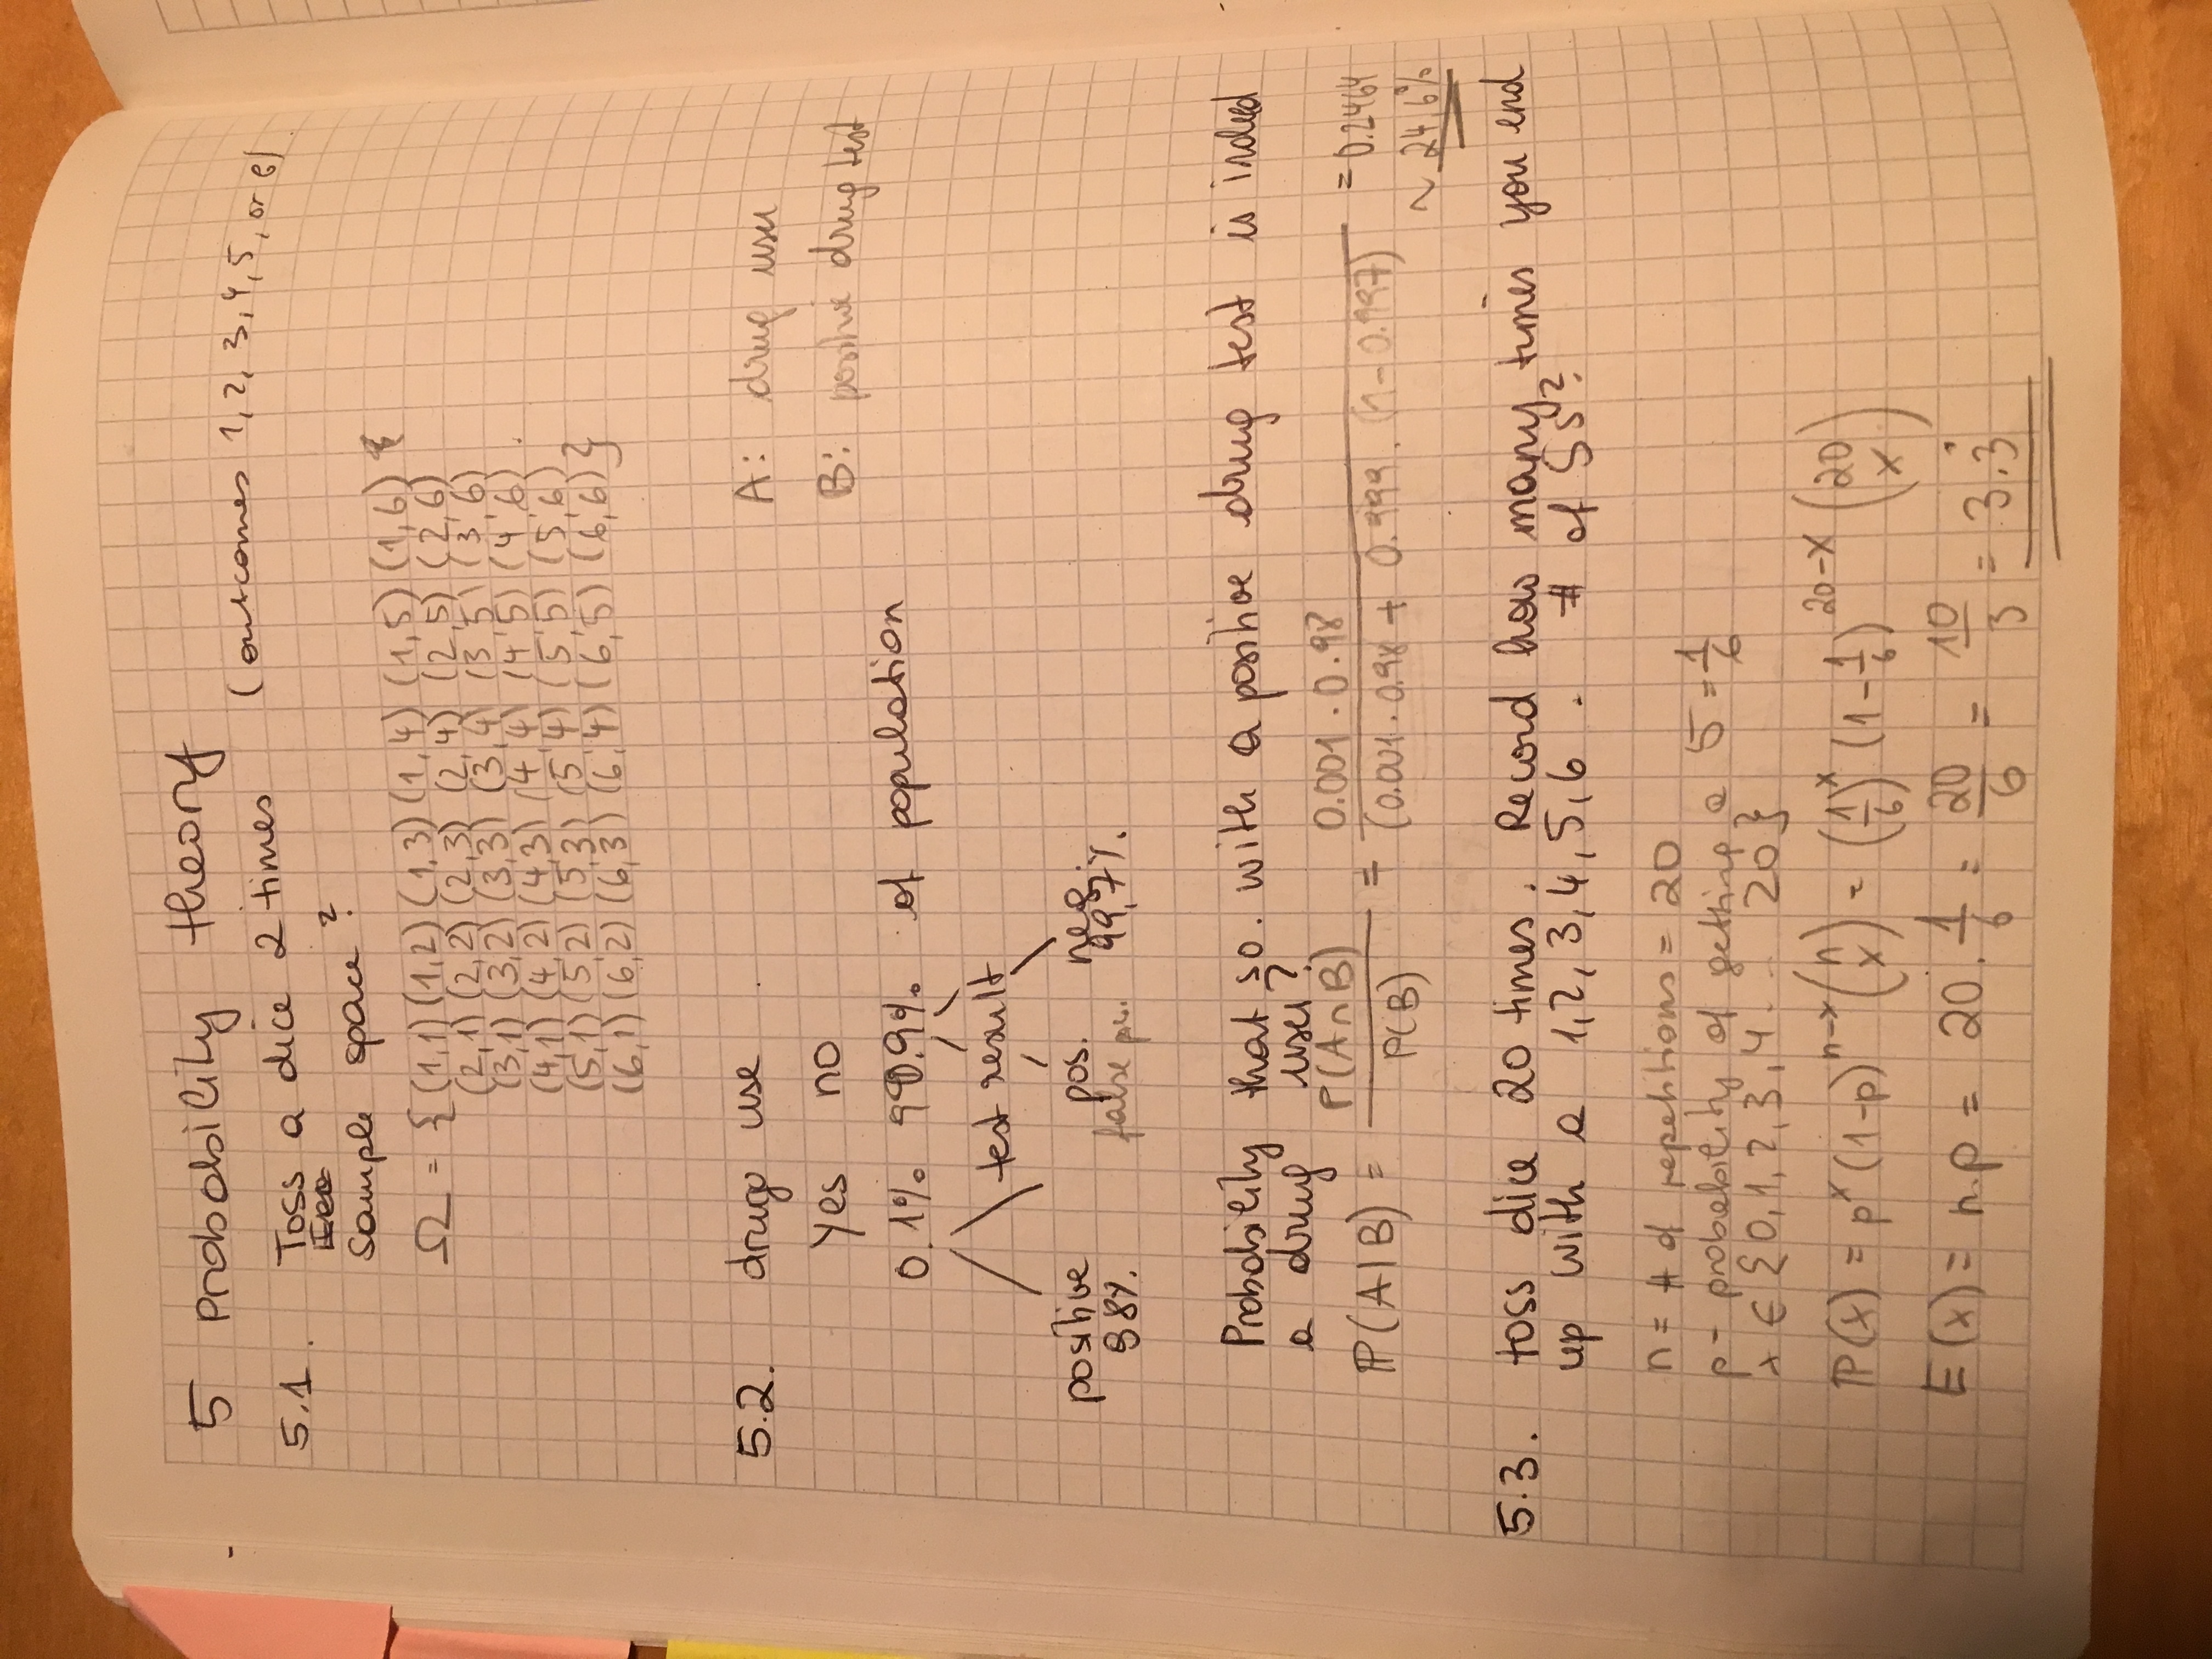 5 Probability theory
5.1. Toss a dice 2 times (outcomes 1, 2, 3, 4, 5, or 6)
Sample space?
Ω = {(1,1) (1,2) (1,3) (1,4) (1,5) (1,6)
(2,1) (2,2) (2,3) (2,4) (2,5) (2,6)
(3,1) (3,2) (3,3) (3,4) (3,5) (3,6)
(4,1) (4,2) (4,3) (4,4) (4,5) (4,6)
(5,1) (5,2) (5,3) (5,4) (5,5) (5,6)
(6,1) (6,2) (6,3) (6,4) (6,5) (6,6)}
5.2. drug use
A: drug user
yes no
B: positive drug test
0.1% 99.9% of population
test result
positive pos. neg.
98%. false pos. 99,7%.
Probability that so. with a positive drug test is indeed
a drug user?
P(A|B) = P(A∩B) / P(B) = 0.001 · 0.98 / (0.001 · 0.98 + 0.999 · (1 - 0.997)) = 0.2464
~ 24,6%
5.3. toss dice 20 times. Record how many times you end
up with a 1, 2, 3, 4, 5, 6. # of 5s?
n = # of repetitions = 20
p - probability of getting a 5 = 1/6
x ∈ {0, 1, 2, 3, 4 ... 20}
P(x) = p^x (1-p)^(n-x) (n x) = (1/6)^x (1 - 1/6)^(20-x) (20 x)
E(x) = n.p = 20 . 1/6 = 20/6 = 10/3 = 3.3̇